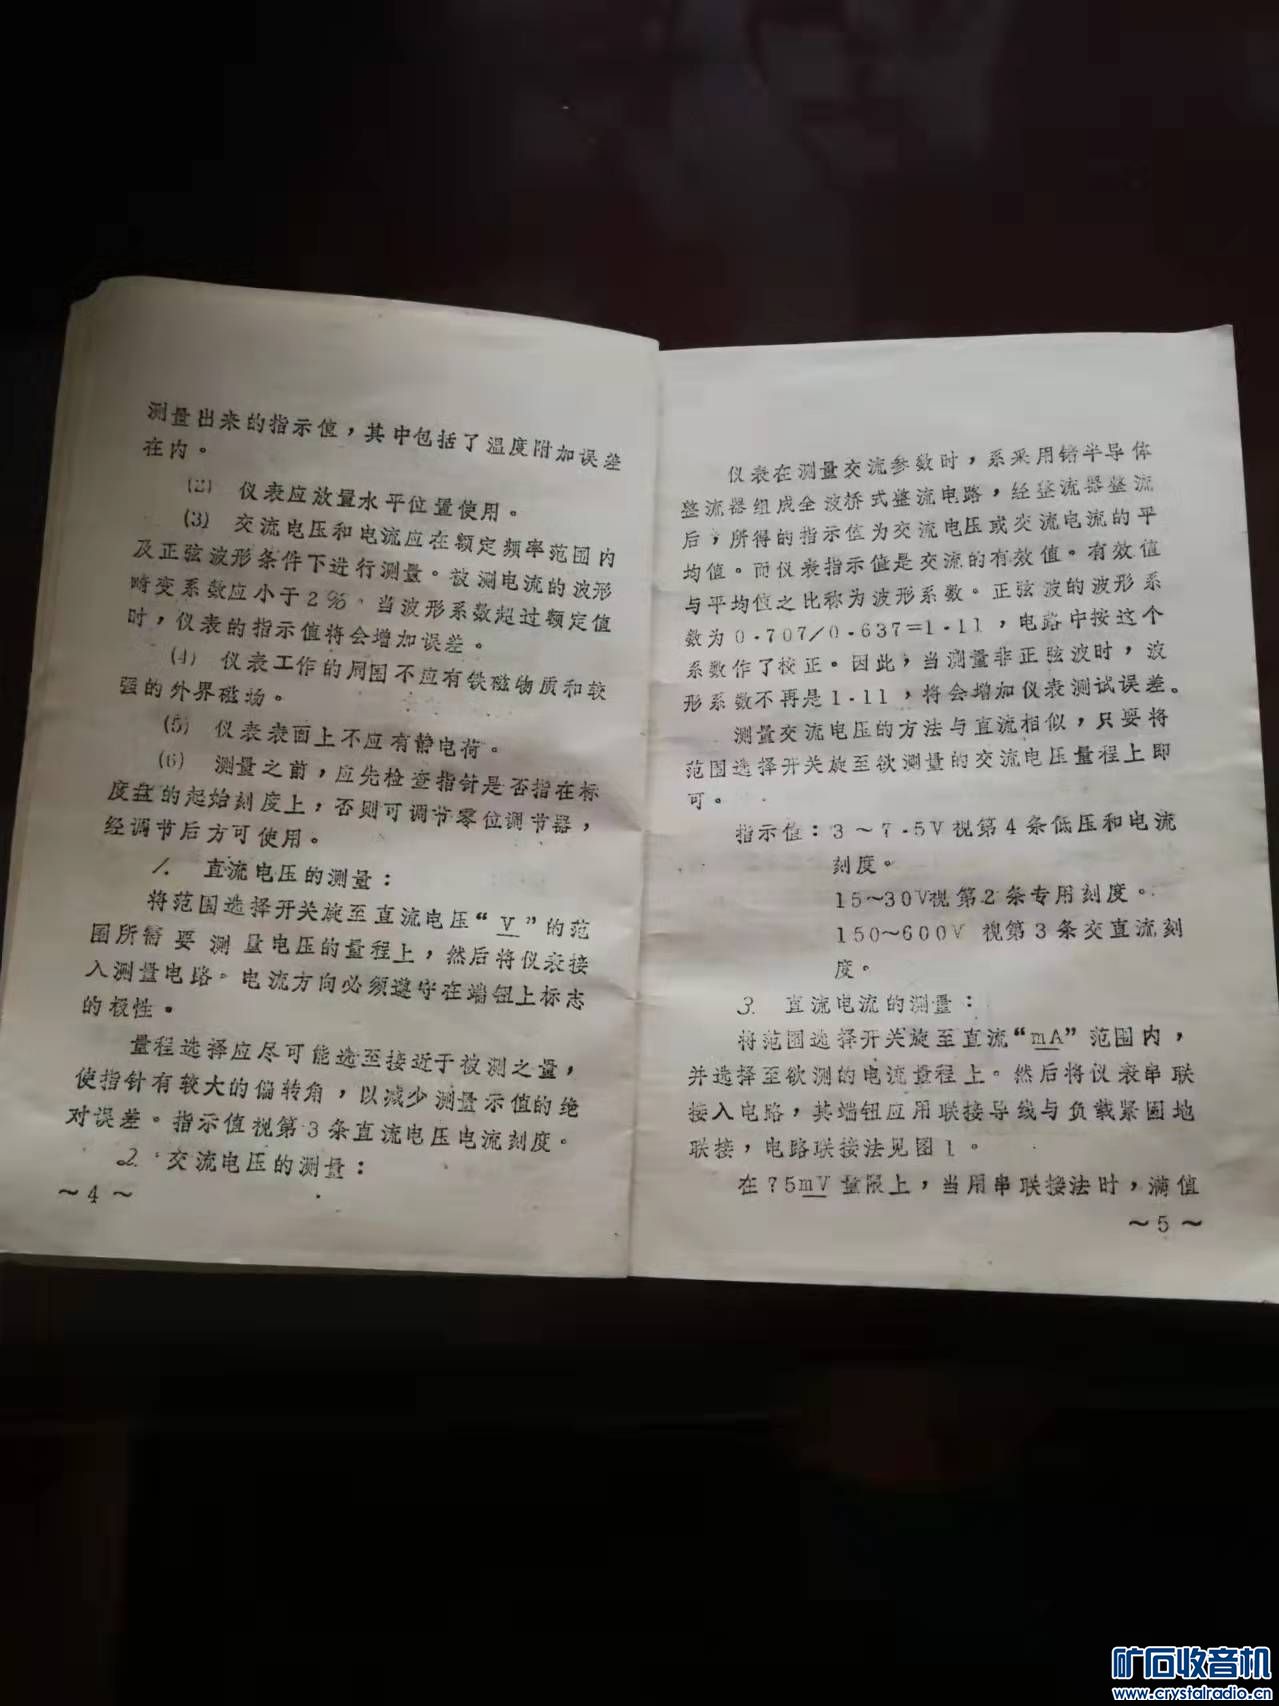 测量出来的指示值，其中包括了温度附加误差
在内。
(2) 仪表应放置水平位置使用。
(3) 交流电压和电流应在额定频率范围内
及正弦波形条件下进行测量。被测电流的波形
畸变系数应小于2%。当波形系数超过额定值
时，仪表的指示值将会增加误差。
(4) 仪表工作的周围不应有铁磁物质和较
强的外界磁场。
(5) 仪表表面上不应有静电荷。
(6) 测量之前，应先检查指针是否指在标
度盘的起始刻度上，否则可调节零位调节器，
经调节后方可使用。
1. 直流电压的测量：
将范围选择开关旋至直流电压“V”的范
围所需要测量电压的量程上，然后将仪表接
入测量电路。电流方向必须遵守在端钮上标志
的极性。
量程选择应尽可能选至接近于被测之量，
使指针有较大的偏转角，以减少测量示值的绝
对误差。指示值视第3条直流电压电流刻度。
2. 交流电压的测量：
～4～
仪表在测量交流参数时，系采用锗半导体
整流器组成全波桥式整流电路，经整流器整流
后，所得的指示值为交流电压或交流电流的平
均值。而仪表指示值是交流的有效值。有效值
与平均值之比称为波形系数。正弦波的波形系
数为0.707/0.637=1.11，电路中按这个
系数作了校正。因此，当测量非正弦波时，波
形系数不再是1.11，将会增加仪表测试误差。
测量交流电压的方法与直流相似，只要将
范围选择开关旋至欲测量的交流电压量程上即
可。
指示值：3～7.5V视第4条低压和电流
刻度。
15～30V视第2条专用刻度。
150～600V 视第3条交直流刻
度。
3. 直流电流的测量：
将范围选择开关旋至直流“mA”范围内，
并选择至欲测的电流量程上。然后将仪表串联
接入电路，其端钮应用联接导线与负载紧固地
联接，电路联接法见图1。
在75mV量限上，当用串联接法时，满值
～5～
矿石收音机
www.crystalradio.cn